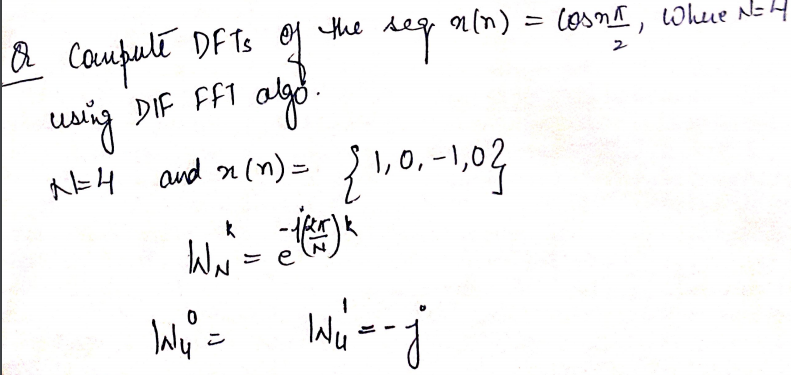 Q Compute DFTs of the seq x(n) = cos nπ/2, where N=4
using DIF FFT algo.
N=4 and x(n) = {1, 0, -1, 0}
W_N^k = e^{-j(2π/N)k}
W_4^0 = W_4^1 = -j